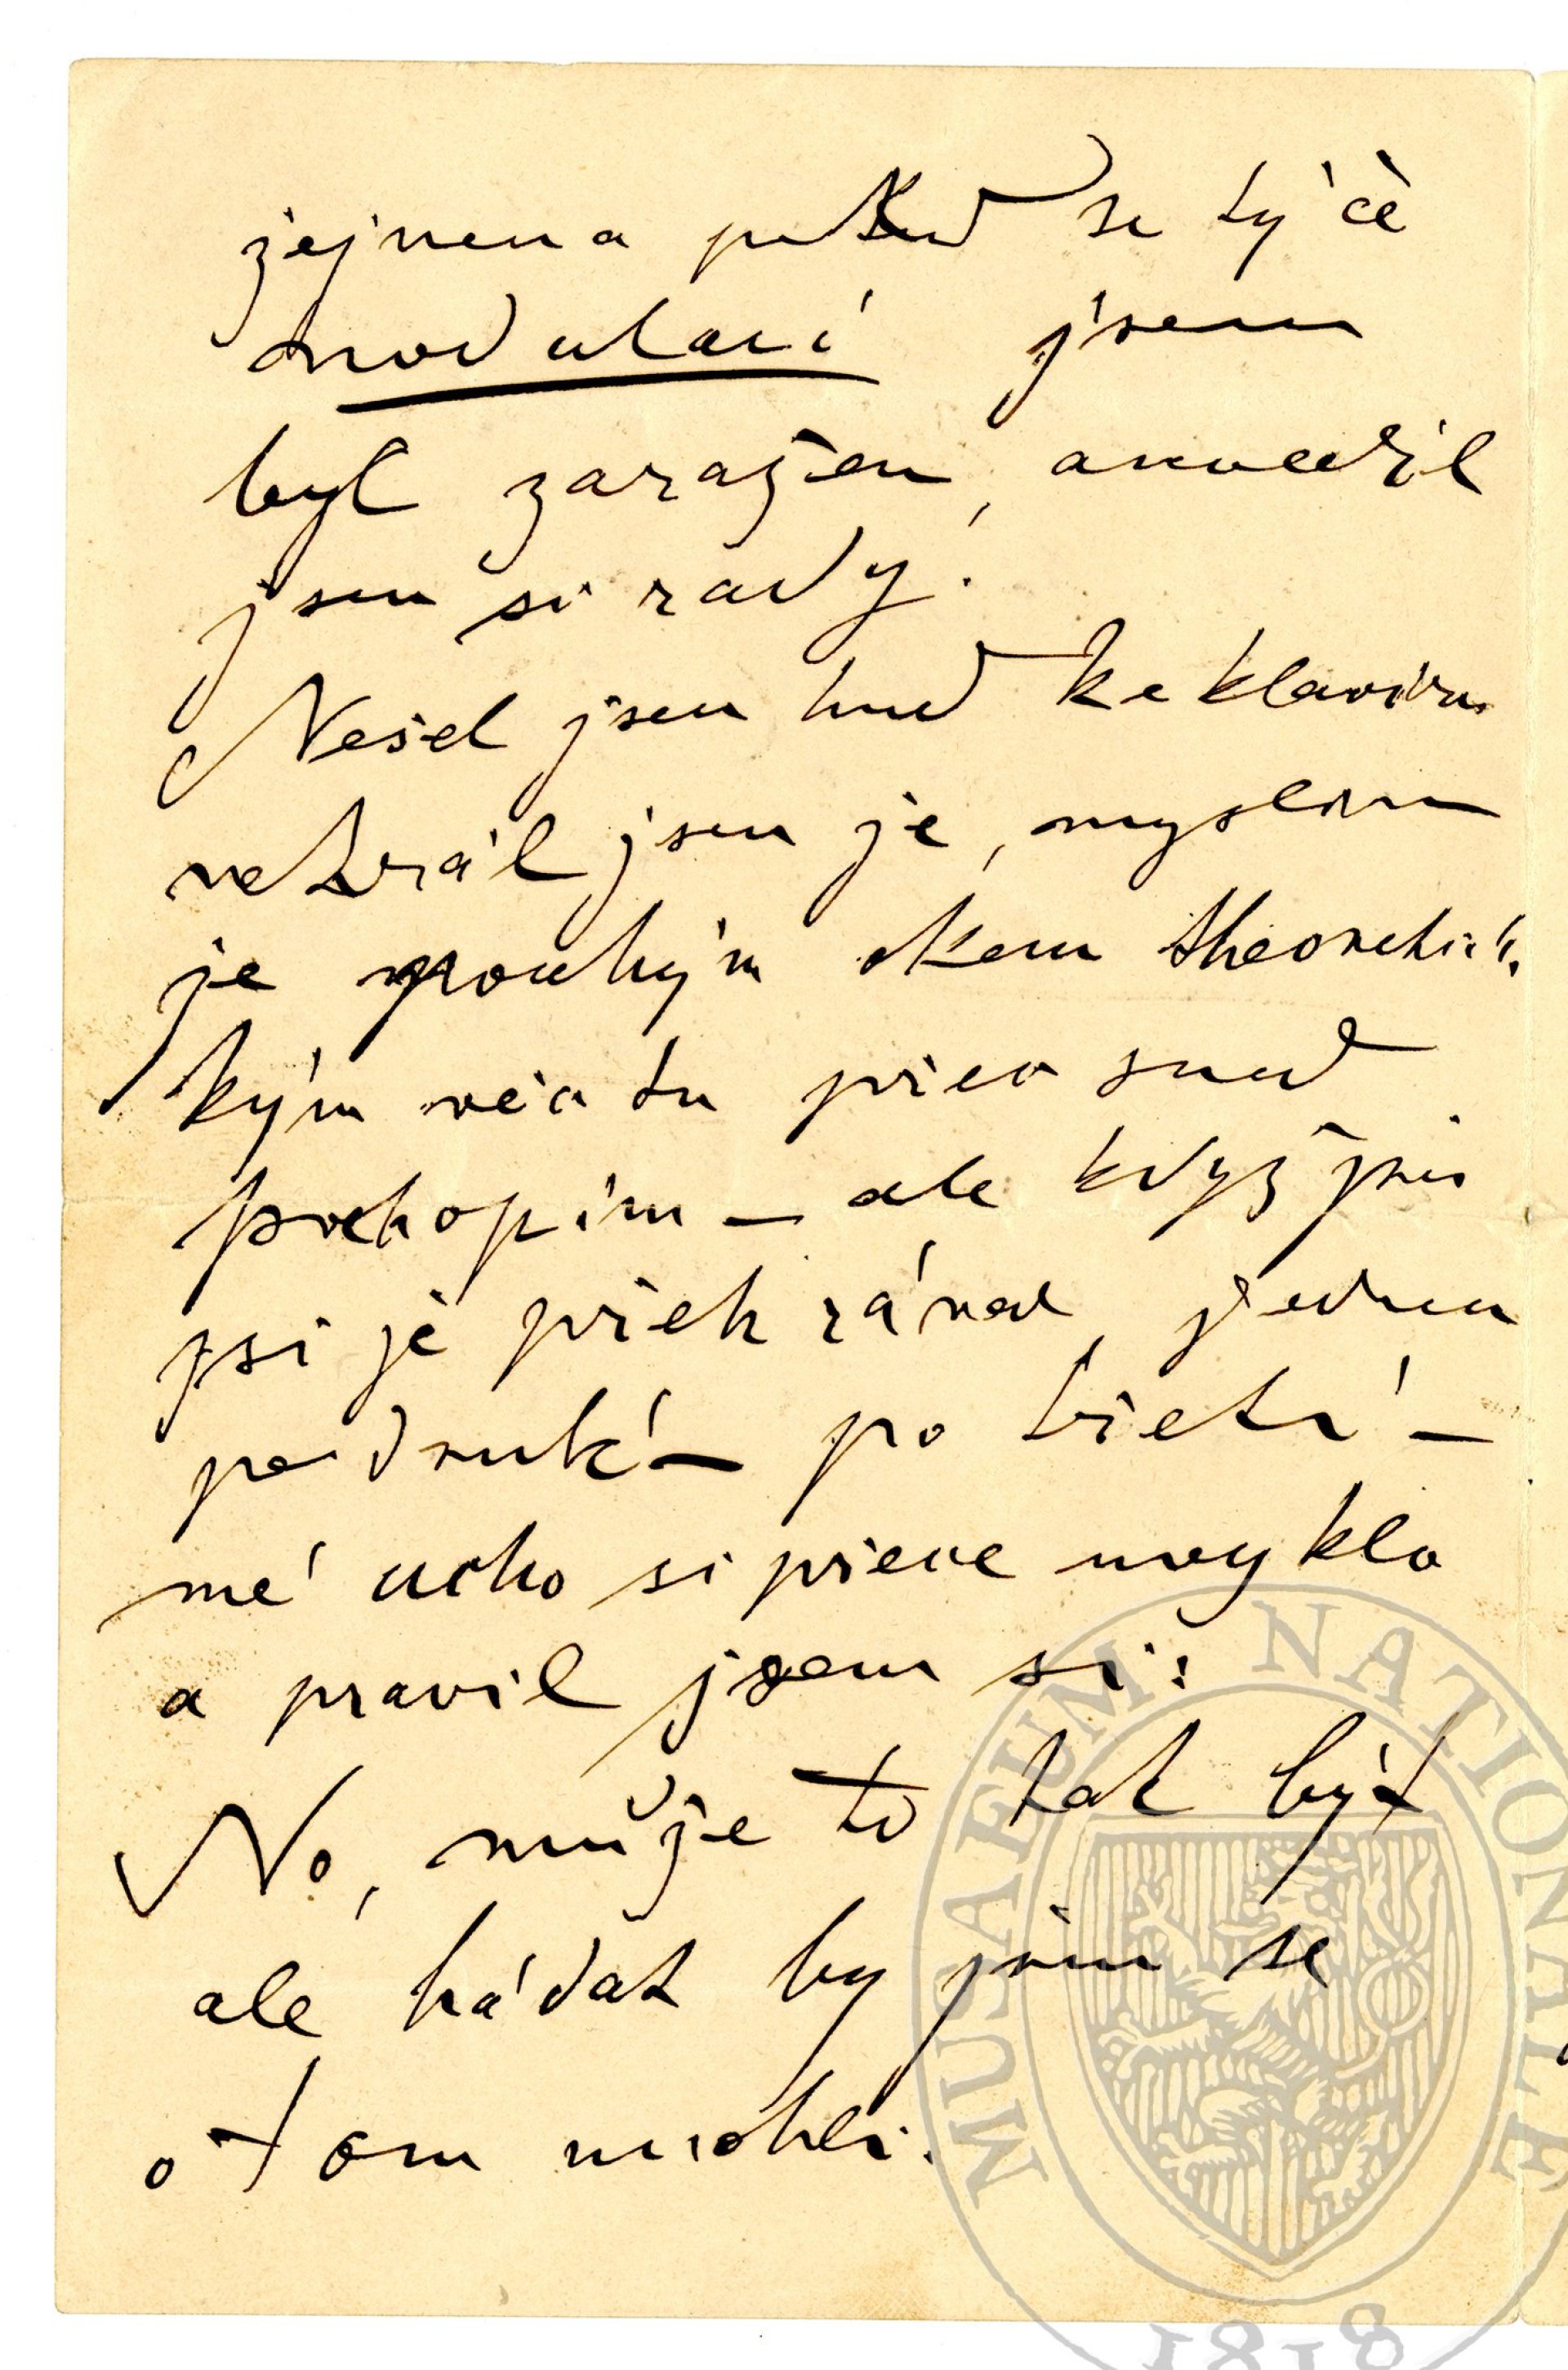 zejmena pokud se týče
modulací jsem
byl zaražen, a nevěděl
jsem si rady.
Nešel jsem hned ke klavíru
nehrál jsem je, myslem
je pouhým okem theoretic-
kým věc tu přece snad
pochopím – ale když jsem
jsi je přehrával, jednou
po druhé – po třetí –
mé ucho si přece uvyklo
a pravil jsem si:
No, může to tak být
ale hádat by jsme se
o tom mohli.
MUSAEUM NATIONALE
1818